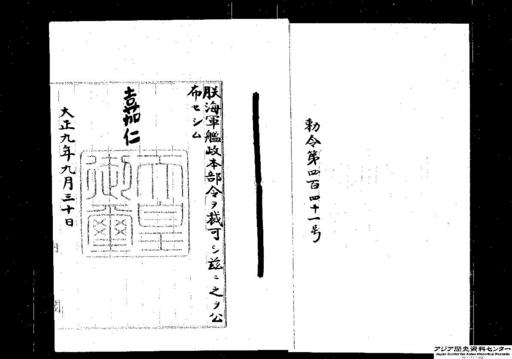 勅令第四百四十一号
朕海軍艦政本部令ヲ裁可シ茲ニ之ヲ公
布セシム
嘉仁
天皇御璽
大正九年九月三十日
アジア歴史資料センター
Japan Center for Asian Historical Records